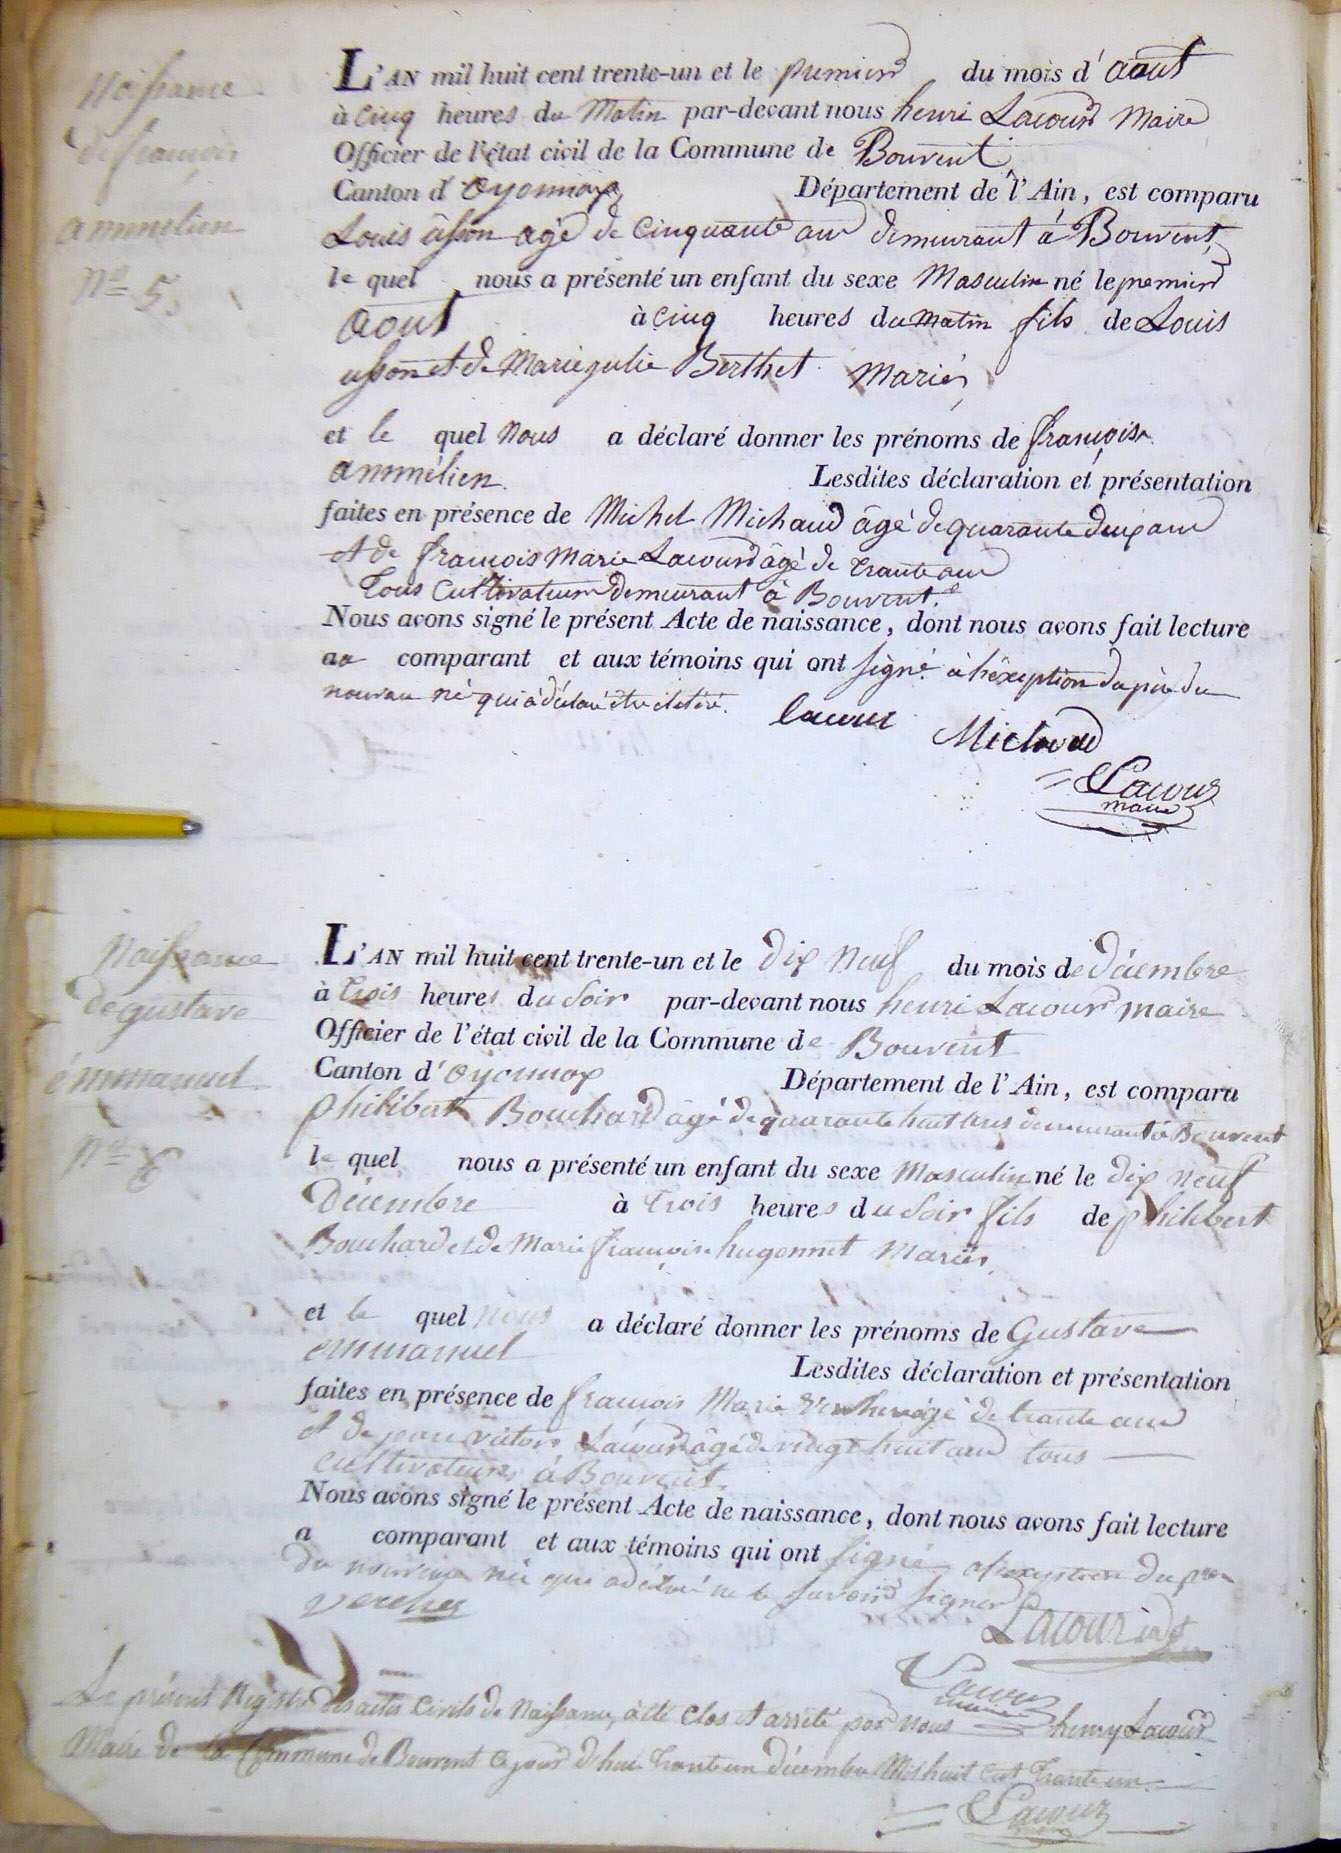 Naissance
de françois
ammélien
N° 5.
L'AN mil huit cent trente-un et le premier du mois d'aout
à cinq heures du Matin par-devant nous henri Lacour Maire
Officier de l'état civil de la Commune de Bouvent
Canton d'Oyonnax Département de l'Ain, est comparu
Louis usson agé de cinquante ans demeurant à Bouvent
le quel nous a présenté un enfant du sexe Masculin né le premier
Aout à cinq heures du matin fils de Louis
usson et de Marie julie Berthet Mariés
et le quel Nous a déclaré donner les prénoms de françois
ammélien. Lesdites déclaration et présentation
faites en présence de Michel Michaud âgé de quarante deux ans
et de françois Marie Lacour âgé de trante ans
Tous Cultivateurs demeurant à Bouvent.
Nous avons signé le présent Acte de naissance, dont nous avons fait lecture
au comparant et aux témoins qui ont signé à l'éxeption du père du
nouveau né qui à déclaré être iletéré.
Lacour Michaud
Lacour
maire
Naissance
de gustave
émmanuel
N° 6
L'AN mil huit cent trente-un et le dix neuf du mois de décembre
à trois heures du Soir par-devant nous henri Lacour maire
Officier de l'état civil de la Commune de Bouvent
Canton d'oyonnax Département de l'Ain, est comparu
philibert Bouchard âgé de quarante huit ans demeurant à Bouvent
le quel nous a présenté un enfant du sexe Masculin né le dix neuf
Décembre à trois heures du Soir fils de philibert
Bouchard et de Marie françoise hugonnet Mariés
et le quel nous a déclaré donner les prénoms de Gustave
emmanuel Lesdites déclaration et présentation
faites en présence de françois Marie âgé de trante ans
et de jean victor Lacour âgé de vingt huit ans tous
cultivateurs à Bouvent.
Nous avons signé le présent Acte de naissance, dont nous avons fait lecture
a comparant et aux témoins qui ont signé à l'exeption du père
du nouveau né qui a déclaré ne le savoir signer
vercher Lacour
Lacour
maire
Le présent Registre des actes Civils de Naissance, à été Clos et arrêté par Nous henry Lacour
Maire de la Commune de Bouvent le jour de hui trante un décembre Mil huit cent trante un.
Lacour